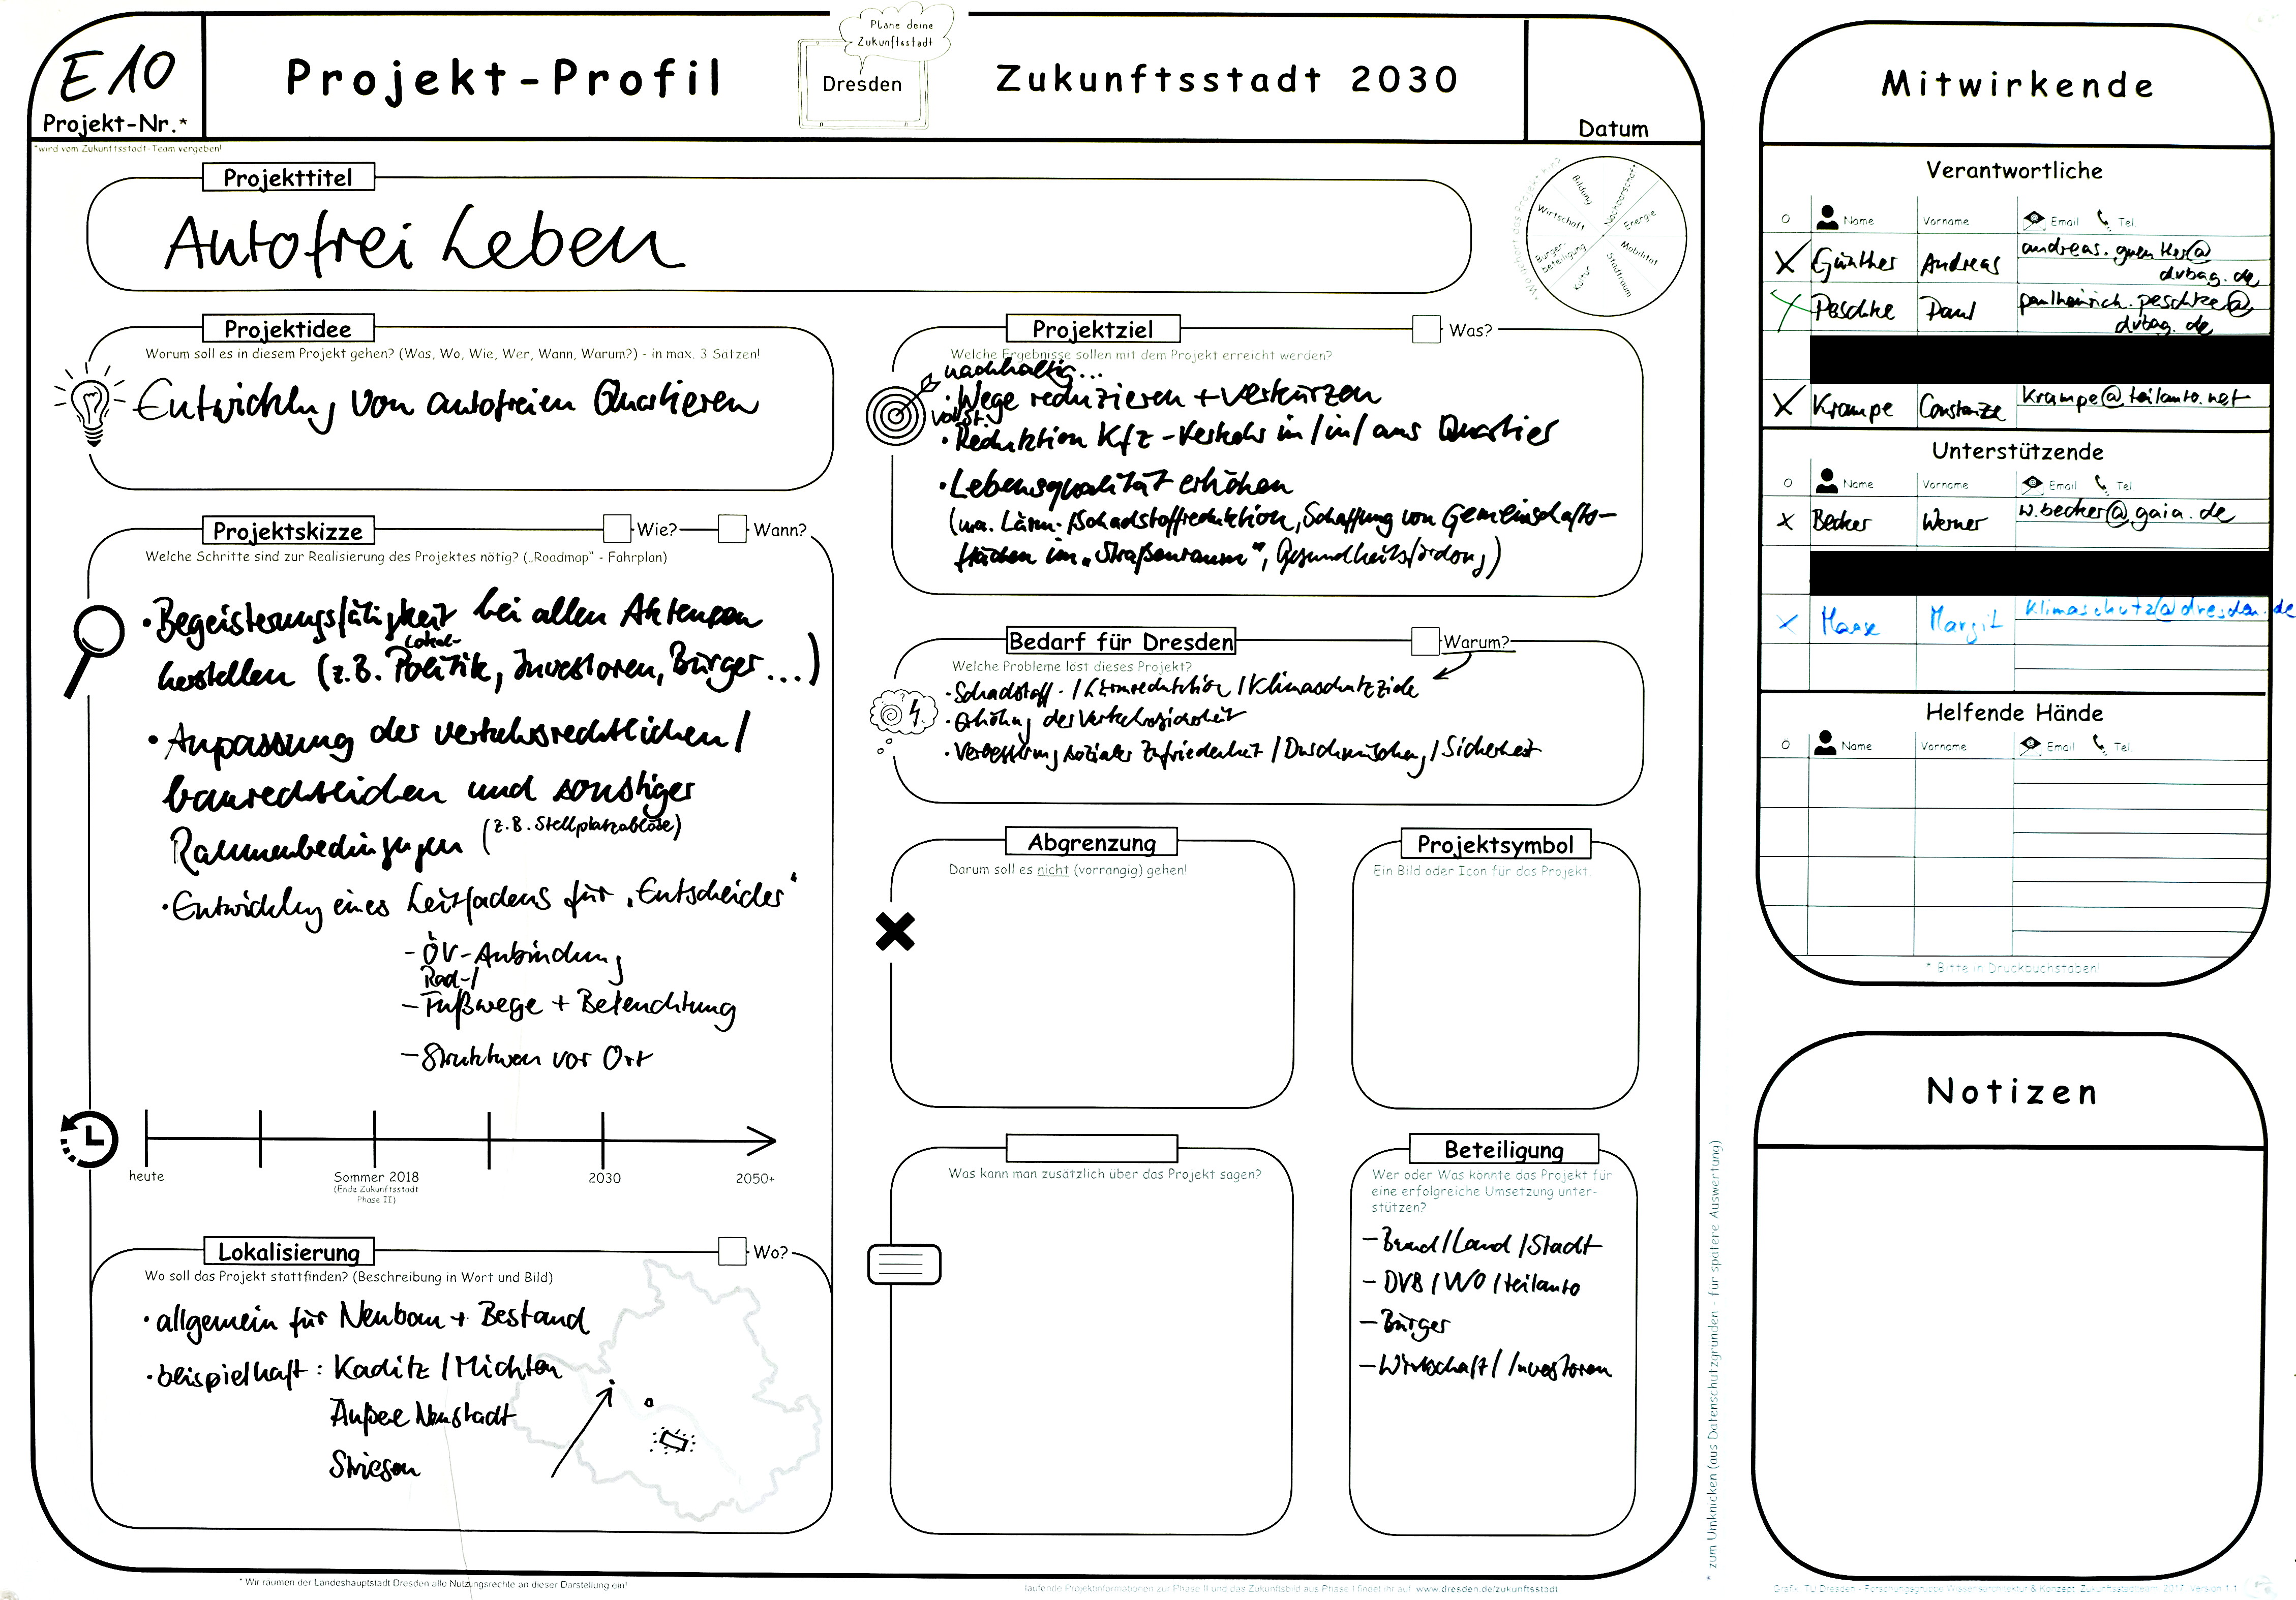 E10
Projekt-Nr.*
*wird vom Zukunftsstadt-Team vergeben!
Projekt-Profil
Plane deine
Zukunftsstadt
Dresden
Zukunftsstadt 2030
Datum
Projekttitel
Autofrei Leben
Bildung
Nachbarschaft
Energie
Mobilität
Stadtraum
Kultur
Bürger-
beteiligung
Wirtschaft
Projektidee
Worum soll es in diesem Projekt gehen? (Was, Wo, Wie, Wer, Wann, Warum?) - in max. 3 Sätzen!
Entwicklung von autofreien Quartieren
Projektskizze
Wie?
Wann?
Welche Schritte sind zur Realisierung des Projektes nötig? („Roadmap" - Fahrplan)
• Begeisterungsfähigkeit bei allen Akteuren
herstellen (z.B. Lokal-Politik, Investoren, Bürger ...)
• Anpassung der verkehrsrechtlichen/
baurechtlichen und sonstiger
Rahmenbedingungen (z.B. Stellplatzablöse)
• Entwicklung eines Leitfadens für „Entscheider"
- ÖV-Anbindung
Rad-/
- Fußwege + Beleuchtung
- Strukturen vor Ort
heute
Sommer 2018
(Ende Zukunftsstadt
Phase II)
2030
2050+
Lokalisierung
Wo?
Wo soll das Projekt stattfinden? (Beschreibung in Wort und Bild)
• allgemein für Neubau + Bestand
• beispielhaft: Kaditz / Mickten
Äußere Neustadt
Striesen
Projektziel
Was?
Welche Ergebnisse sollen mit dem Projekt erreicht werden?
nachhaltig...
• Wege reduzieren + verkürzen
• Reduktion Kfz-Verkehr im/in/aus Quartier
• Lebensqualität erhöhen
(u.a. Lärm-/Schadstoffreduktion, Schaffung von Gemeinschafts-
flächen im „Straßenraum", Gesundheitsförderung)
Bedarf für Dresden
Warum?
Welche Probleme löst dieses Projekt?
• Schadstoff-/Lärmreduktion/Klimaschutzziele
• Erhöhung der Verkehrssicherheit
• Verbesserung sozialer Zufriedenheit / Durchmischung / Sicherheit
Abgrenzung
Darum soll es nicht (vorrangig) gehen!
Projektsymbol
Ein Bild oder Icon für das Projekt.
Was kann man zusätzlich über das Projekt sagen?
Beteiligung
Wer oder Was könnte das Projekt für
eine erfolgreiche Umsetzung unter-
stützen?
- Bund/Land/Stadt
- DVB / VVO / teilauto
- Bürger
- Wirtschaft / Investoren
* Wir räumen der Landeshauptstadt Dresden alle Nutzungsrechte an dieser Darstellung ein!
laufende Projektinformationen zur Phase II und das Zukunftsbild aus Phase I findet ihr auf: www.dresden.de/zukunftsstadt
* zum Umknicken (aus Datenschutzgründen - für spätere Auswertung)
Mitwirkende
Verantwortliche
Name Vorname Email Tel.
X Günther Andreas andreas.guenther@
dvbag.de
X Peschke Paul paulheinrich.peschke@
dvbag.de
X Krampe Constanze krampe@teilauto.net
Unterstützende
Name Vorname Email Tel.
X Becker Werner w.becker@gaia.de
X Haase Margit klimaschutz@dresden.de
Helfende Hände
Name Vorname Email Tel.
* Bitte in Druckbuchstaben!
Notizen
Grafik: TU Dresden - Forschungsgruppe Wissensarchitektur & Konzept: Zukunftsstadtteam, 2017, Version 1.1